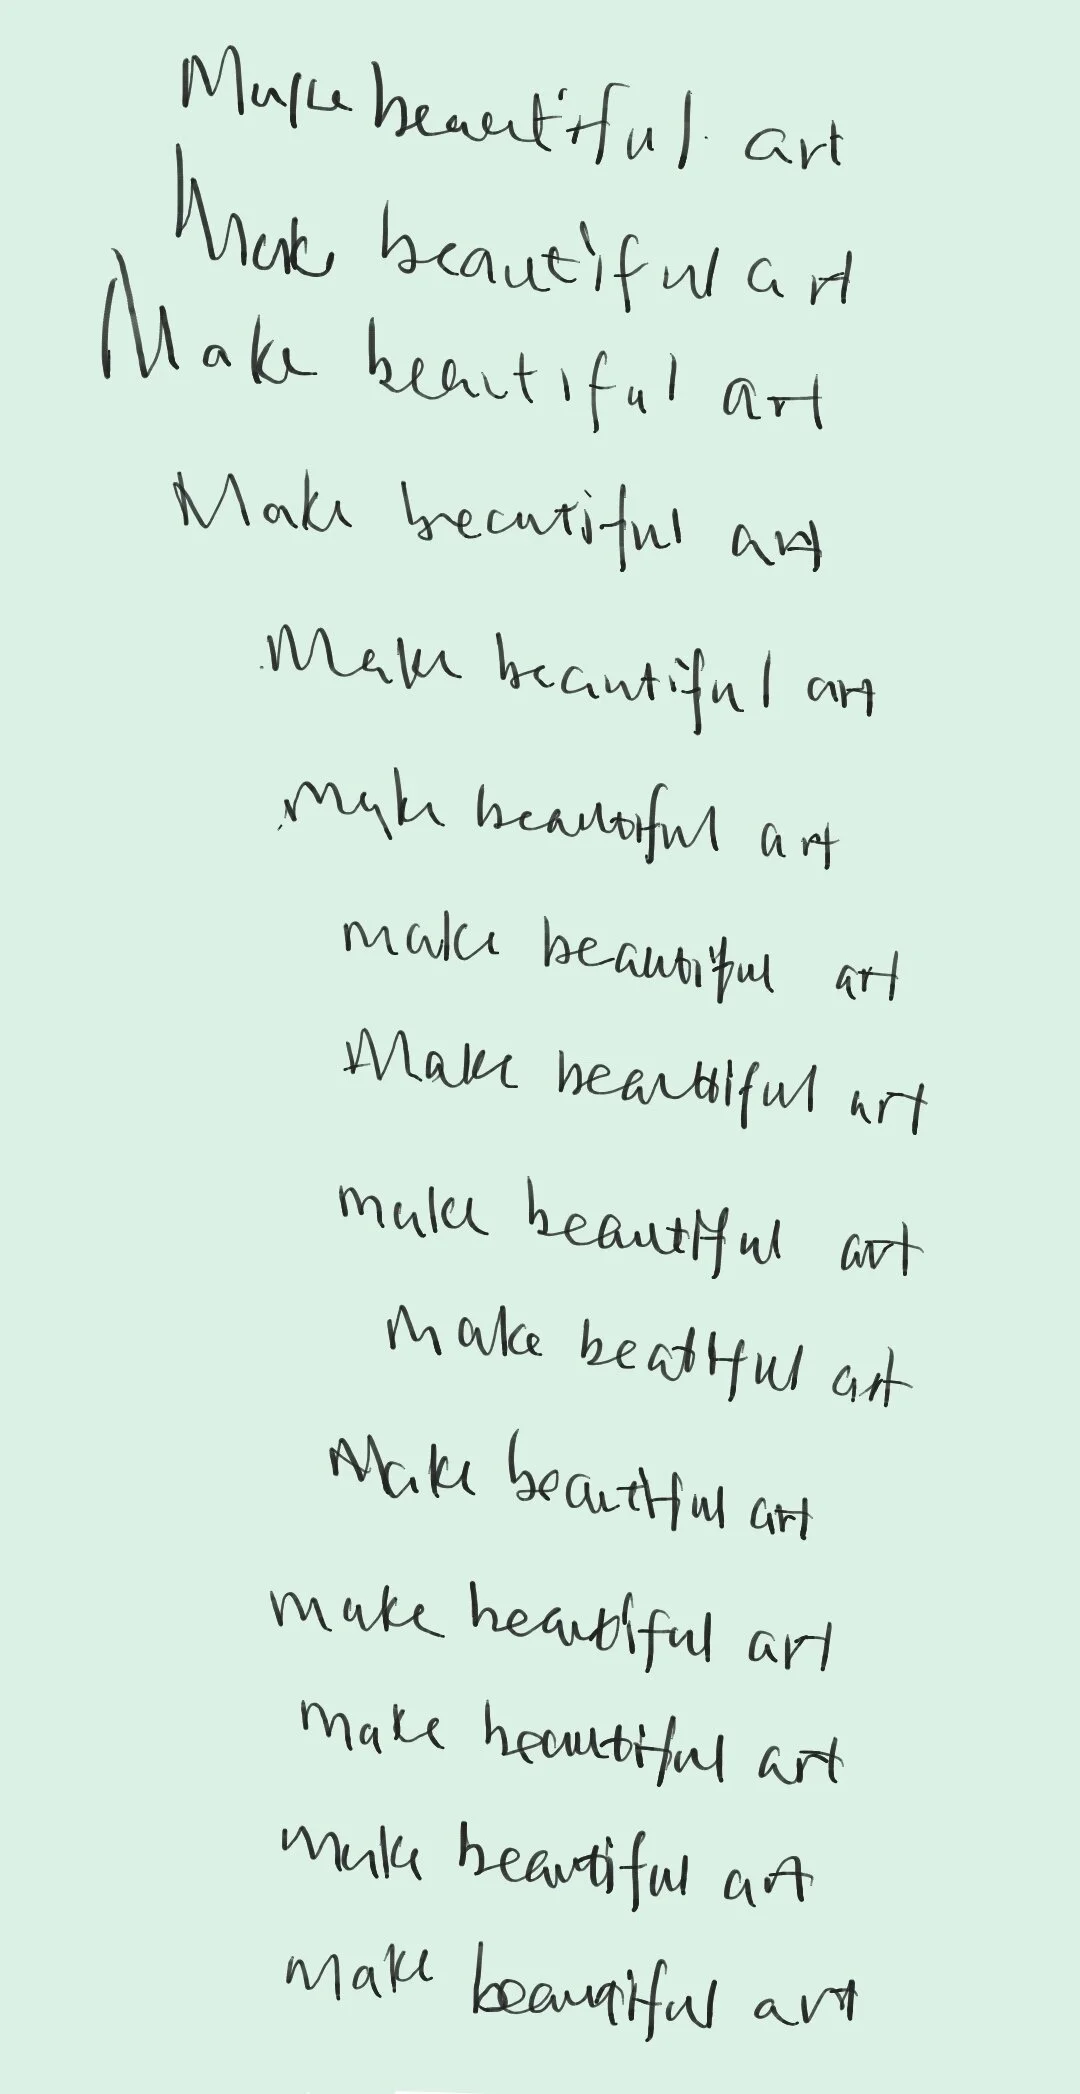 Make beautiful art
Make beautiful art
Make beautiful art
Make beautiful art
Make beautiful art
Make beautiful art
make beautiful art
Make beautiful art
make beautiful art
Make beatiful art
Make beautiful art
make beautiful art
make beautiful art
make beautiful art
make beautiful art